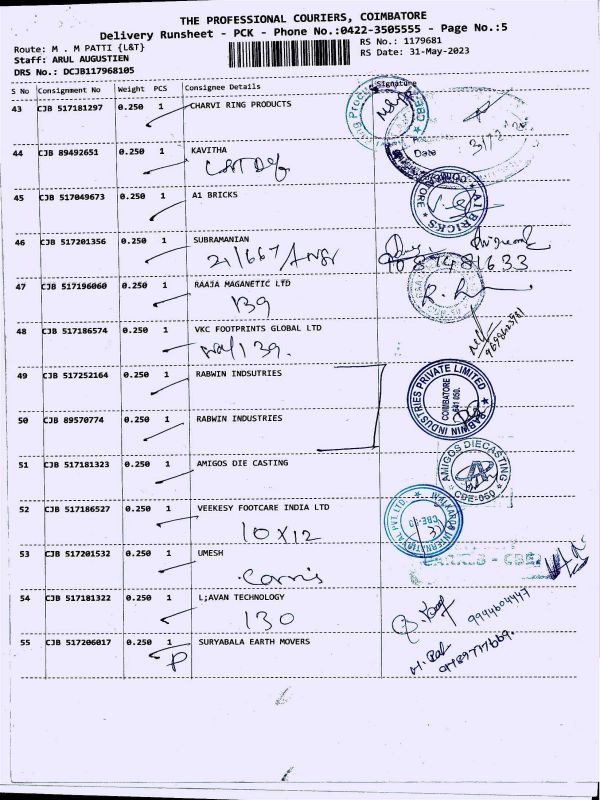 THE PROFESSIONAL COURIERS, COIMBATORE
Delivery Runsheet - PCK - Phone No.:0422-3505555 - Page No.:5
Route: M . M PATTI {L&T}
RS No.: 1179681
Staff: ARUL AUGUSTIEN
RS Date: 31-May-2023
DRS No.: DCJB117968105
S No Consignment No Weight PCS Consignee Details Signature
43 CJB 517181297 0.250 1 CHARVI RING PRODUCTS
Date
44 CJB 89492651 0.250 1 KAVITHA
45 CJB 517049673 0.250 1 A1 BRICKS
A1 BRICKS
46 CJB 517201356 0.250 1 SUBRAMANIAN
21/667
47 CJB 517196060 0.250 1 RAAJA MAGANETIC LTD
139
48 CJB 517186574 0.250 1 VKC FOOTPRINTS GLOBAL LTD
139.
49 CJB 517252164 0.250 1 RABWIN INDSUTRIES
RABWIN INDUSTRIES PRIVATE LIMITED
COIMBATORE
641 050.
50 CJB 89570774 0.250 1 RABWIN INDUSTRIES
51 CJB 517181323 0.250 1 AMIGOS DIE CASTING
AMIGOS DIECASTING
CBE-050
52 CJB 517186527 0.250 1 VEEKESY FOOTCARE INDIA LTD
10X12
WALKAROO INTERNATIONAL PVT LTD
53 CJB 517201532 0.250 1 UMESH
54 CJB 517181322 0.250 1 L;AVAN TECHNOLOGY
130
9944604447
55 CJB 517206017 0.250 1 SURYABALA EARTH MOVERS
P